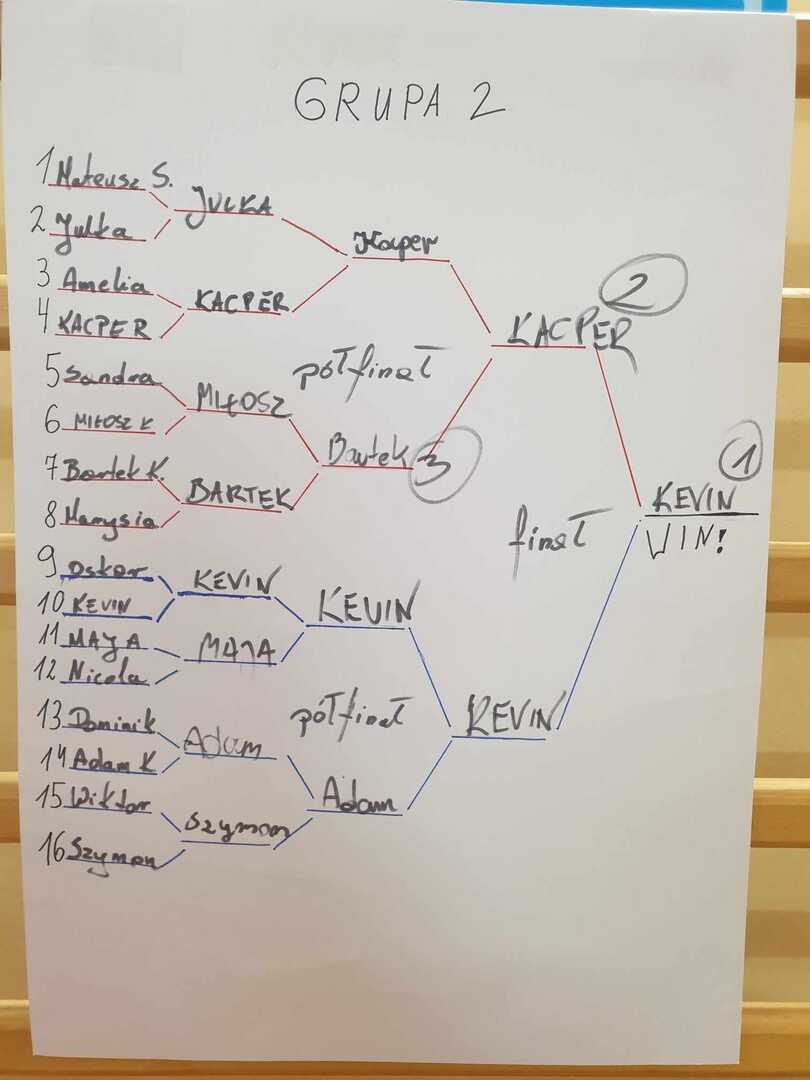 GRUPA 2
1 Mateusz S.
2 Julka
3 Amelia
4 KACPER
5 Sandra
6 MIŁOSZ K
7 Bartek K.
8 Marysia
9 Oskar
10 KEVIN
11 MAYA
12 Nicola
13 Dominik
14 Adam K
15 Wiktor
16 Szymon
JULKA
KACPER
MIŁOSZ
BARTEK
KEVIN
MAJA
Adam
Szymon
Kacper
półfinał
Bartek 3
KEVIN
półfinał
Adam
KACPER 2
finał
KEVIN
1
KEVIN
WIN!